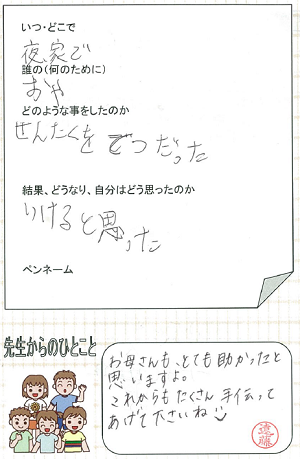 いつ・どこで
夜、家で
誰の(何のために)
おや
どのような事をしたのか
せんたくを てつだった
結果、どうなり、自分はどう思ったのか
いけると思った
ペンネーム
先生からのひとこと
お母さんも、とても助かったと
思いますよ。
これからもたくさん手伝って
あげて下さいね
遠藤